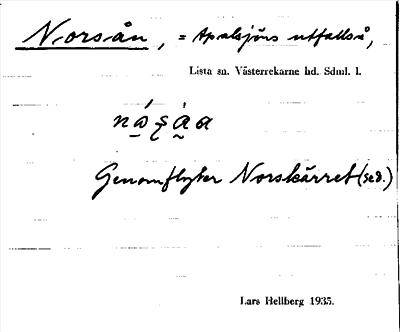 Norsån, = Apalsjöns utfallså,
Lista sn. Västerrekarne hd. Sdml. l.
Genomflyter Norskärret (se d.)
Lars Hellberg 1935.